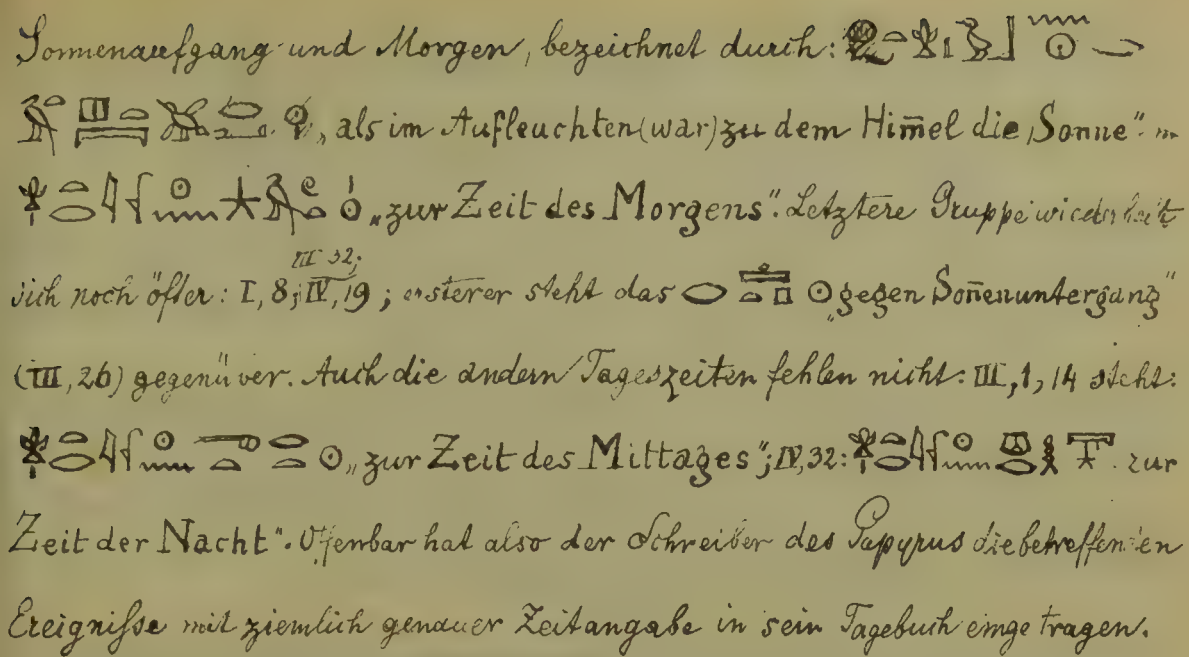 Sonnenaufgang und Morgen, bezeichnet durch:
„als im Aufleuchten (war) zu dem Him̄el die Sonne“
„zur Zeit des Morgens“. Letztere Gruppe wiederholt
III 32;
sich noch öfter: I, 8; IV, 19; ersterer steht das „gegen Son̄enuntergang“
(III, 26) gegenüber. Auch die andern Tageszeiten fehlen nicht: III, 1, 14 steht:
„zur Zeit des Mittages“; IV, 32: zur
Zeit der Nacht“. Offenbar hat also der Schreiber des Papyrus die betreffenden
Ereignisse mit ziemlich genauer Zeitangabe in sein Tagebuch eingetragen.